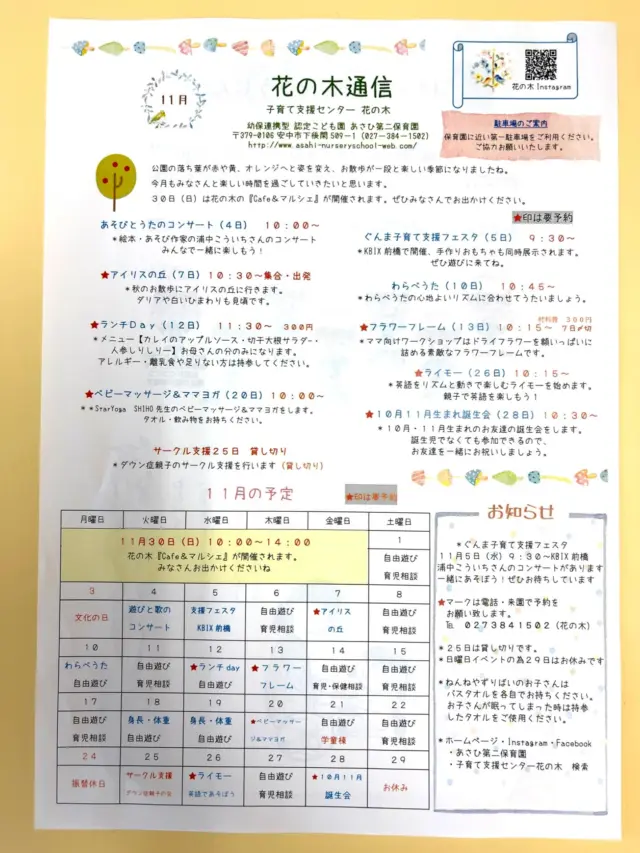 花の木 Instagram
花の木通信
11月
子育て支援センター 花の木
幼保連携型 認定こども園 あさひ第二保育園
〒379-0106 安中市下後閑509-1(027-384-1502)
http://www.asahi-nurseryschool-web.com/
駐車場のご案内
保育園に近い第一駐車場をご利用ください。
ご協力お願いいたします。
公園の落ち葉が赤や黄、オレンジへと姿を変え、お散歩が一段と楽しい季節になりましたね。
今月もみなさんと楽しい時間を過ごしていきたいと思います。
30日(日)は花の木の『Cafe&マルシェ』が開催されます。ぜひみなさんでお出かけください。
★印は要予約
あそびとうたのコンサート(4日) 10:00~
*絵本・あそび作家の浦中こういちさんのコンサート
みんなで一緒に楽しもう!
★アイリスの丘(7日)10:30~集合・出発
*秋のお散歩にアイリスの丘に行きます。
ダリアや白いひまわりも見頃です。
★ランチDay(12日) 11:30~ 300円
*メニュー【カレイのアップルソース・切干大根サラダ・
人参しりしりー】お母さんの分のみになります。
アレルギー・離乳食や足りない方は持参してください。
★ベビーマッサージ&ママヨガ(20日)10:00~
**StarYoga SHIHO先生のベビーマッサージ&ママヨガをします。
タオル・飲み物をお持ちください。
サークル支援25日 貸し切り
*ダウン症親子のサークル支援を行います(貸し切り)
ぐんま子育て支援フェスタ(5日) 9:30~
*KBIX前橋で開催、手作りおもちゃも同時展示されます。
ぜひ遊びに来てね。
わらべうた(10日) 10:45~
*わらべうたの心地よいリズムに合わせてうたいましょう。
材料費 300円
★フラワーフレーム(13日)10:15~ 7日〆切
*ママ向けワークショップはドライフラワーを額いっぱいに
詰める素敵なフラワーフレームです。
★ライモー(26日)10:15~
*英語をリズムと動きで楽しむライモーを始めます。
親子で英語を楽しもう!
★10月11月生まれ誕生会(28日)10:30~
*10月・11月生まれのお友達の誕生会をします。
誕生児でなくても参加できるので、
お友達を一緒にお祝いしましょう。
11月の予定
★印は要予約
月曜日 火曜日 水曜日 木曜日 金曜日 土曜日
11月30日(日)10:00~14:00
花の木『Cafe&マルシェ』が開催されます。
みなさんお出かけくださいね
1
自由遊び
育児相談
3 4 5 6 7 8
文化の日 遊びと歌の 支援フェスタ 自由遊び ★アイリス 自由遊び
コンサート KBIX前橋 育児相談 の丘 育児相談
10 11 12 13 14 15
わらべうた 自由遊び ★ランチday ★フラワー 自由遊び 自由遊び
自由遊び 育児相談 自由遊び フレーム 育児・保健相談 育児相談
17 18 19 20 21 22
自由遊び 身長・体重 身長・体重 ★ベビーマッサー 自由遊び 自由遊び
育児相談 自由遊び 自由遊び ジ&ママヨガ 学童棟 育児相談
24 25 26 27 28 29
振替休日 サークル支援 ★ライモー 自由遊び ★10月11月 お休み
ダウン症親子の会 英語であそぼう 育児相談 誕生会
お知らせ
*ぐんま子育て支援フェスタ
11月5日(水)9:30~KBIX前橋
浦中こういちさんのコンサートがあります
一緒にあそぼう!ぜひお待ちしています
★マークは電話・来園で予約を
お願い致します。
℡ 0273841502(花の木)
*25日は貸し切りです。
*日曜日イベントの為29日はお休みです
*ねんねやずりばいのお子さんは
バスタオルを各自でお持ちください。
お子さんが眠ってしまった時は持参
したタオルをご使用ください。
*ホームページ・Instagram・Facebook
・あさひ第二保育園
・子育て支援センター花の木 検索